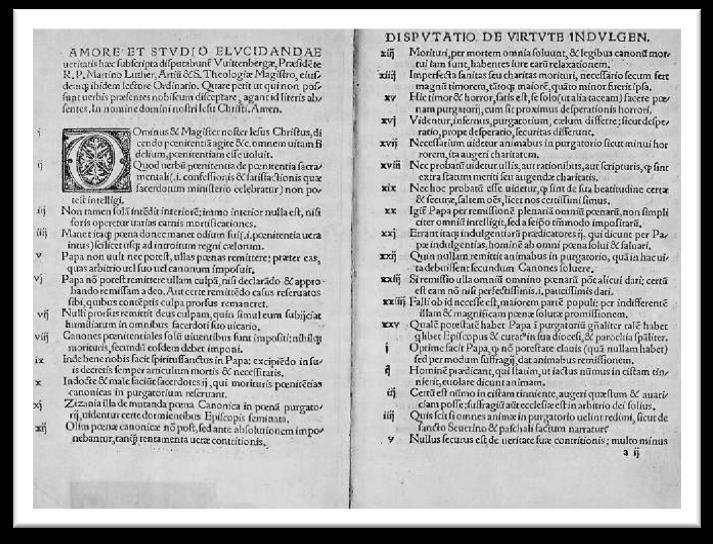 AMORE ET STVDIO ELVCIDANDAE
ueritatis hæc subscripta disputabunť Vuittenbergæ, Præsidēte
R. P. Martino Luther, Artiū & S. Theologiæ Magistro, eius-
demq; ibidem lectore Ordinario. Quare petit ut qui non pos-
sunt uerbis præsentes nobiscum disceptare, agant id literis ab-
sentes. In nomine domini nostri Iesu Christi, Amen.
i DOminus & Magister noster Iesus Christus, di
cendo pœnitentiā agite &c. omnem uitam fi
delium, pœnitentiam esse uoluit.
ij Quod uerbū pœnitentia de pœnitentia sacra-
mentali (.i. confessionis & satisfactionis quæ
sacerdotum ministerio celebratur) non po-
test intelligi.
iij Non tamen solā intēdit interiorē; immo interior nulla est, nisi
foris operetur uarias carnis mortificationes.
iiij Manet itaq; pœna donec manet odium sui (.i. pœnitentia uera
intus) scilicet usq; ad introitum regni cælorum.
v Papa non uult nec potest, ullas pœnas remittere; præter eas,
quas arbitrio uel suo uel canonum imposuit.
vj Papa nō potest remittere ullam culpā, nisi declarādo & appro-
bando remissam a deo. Aut certe remittēdo casus reseruatos
sibi, quibus contēptis culpa prorsus remaneret.
vij Nulli prorsus remittit deus culpam, quin simul eum subijciat
humiliatum in omnibus sacerdoti suo uicario.
viij Canones pœnitentiales solū uiuentibus sunt impositi; nihilq;
morituris, secundū eosdem debet imponi.
ix Inde bene nobis facit spiritussanctus in Papa; excipiēdo in su-
is decretis semper articulum mortis & necessitatis.
x Indocte & male faciūt sacerdotes ij, qui morituris pœnitētias
canonicas in purgatorium reseruant.
xj Zizania illa de mutanda pœna Canonica in pœnā purgato-
rij, uidentur certe dormientibus Episcopis seminata.
xij Olim pœnæ canonicæ nō post, sed ante absolutionem impo-
nebantur, tanq̃ tentamenta ueræ contritionis.
DISPVTATIO DE VIRTVTE INDVLGEN.
xiij Morituri, per mortem omnia soluunt, & legibus canonū mor-
tui iam sunt, habentes iure earū relaxationem.
xiiij Imperfecta sanitas seu charitas morituri, necessario secum fert
magnū timorem, tātoq; maiorē, quāto minor fuerit ipsa.
xv Hic timor & horror, satis est, se solo (ut alia taceam) facere pœ-
nam purgatorij, cum sit proximus desperationis horrori.
xvj Videntur, infernus, purgatorium, cælum differre; sicut despe-
ratio, prope desperatio, securitas differunt.
xvij Necessarium uidetur animabus in purgatorio sicut minui hor
rorem, ita augeri charitatem.
xviij Nec probatū uidetur ullis, aut rationibus, aut scripturis, q̃ sint
extra statum meriti seu augendæ charitatis.
xix Nec hoc probatū esse uidetur, q̃ sint de sua beatitudine certæ
& securæ, saltem oēs, licet nos certissimi simus.
xx Igiť Papa per remissionē plenariā omniū pœnarū, non simpli
citer omniū intelligit, sed a seipso tātūmodo impositarū.
xxj Errant itaq; indulgentiarū prædicatores ij, qui dicunt per Pa-
pæ indulgentias, hominē ab omni pœna solui & saluari.
xxij Quin nullam remittit animabus in purgatorio, quā in hac ui-
ta debuissent secundum Canones soluere.
xxiij Si remissio ulla omniū omnino pœnarū pōt alicui dari; certū
est eam nō nisi perfectissimis .i. paucissimis dari.
xxiiij Falli ob id necesse est, maiorem partē populi; per indifferentē
illam & magnificam pœnæ solutæ promissionem.
xxv Qualē potestatē habet Papa ī purgatoriū gñaliter; talē habet
q̃libet Episcopus & curat⁹ in sua diocesi, & parochia sp̄aliter.
j Optime facit Papa, q̃ nō potestate clauis (quā nullam habet)
sed per modum suffragij, dat animabus remissionem.
ij Hominē prædicant, qui statim, ut iactus nūmus in cistam tin-
nierit, euolare dicunt animam.
iij Certū est nūmo in cistam tinniente, augeri quæstum & auari-
ciam posse; suffragiū aūt ecclesiæ est in arbitrio dei solius.
iiij Quis scit si omnes animæ in purgatorio uelint redimi, sicut de
sancto Seuerino & paschali factum narratur.
v Nullus securus est de ueritate suæ contritionis; multo minus
a ij